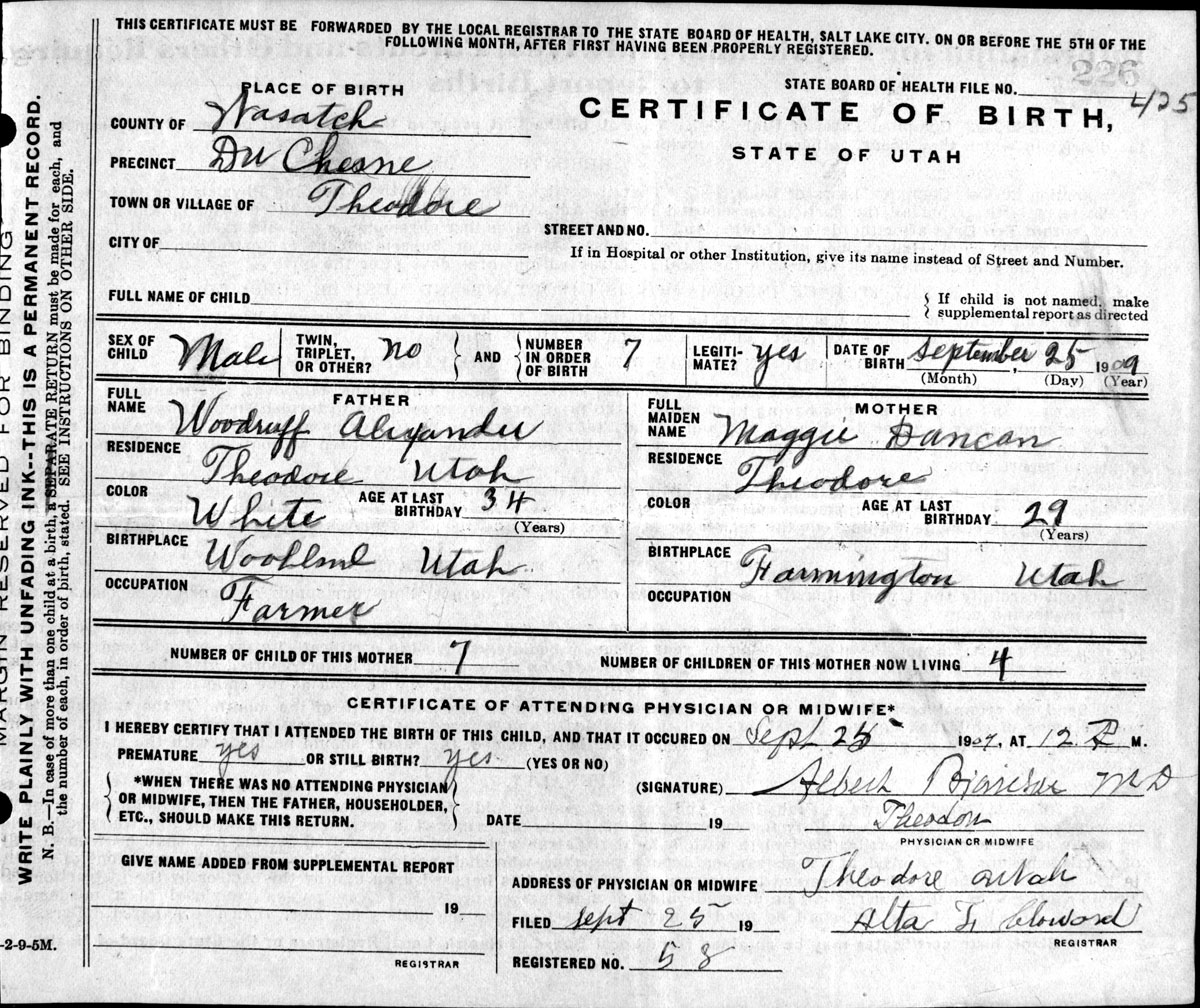 THIS CERTIFICATE MUST BE FORWARDED BY THE LOCAL REGISTRAR TO THE STATE BOARD OF HEALTH, SALT LAKE CITY. ON OR BEFORE THE 5TH OF THE
FOLLOWING MONTH, AFTER FIRST HAVING BEEN PROPERLY REGISTERED.
226
STATE BOARD OF HEALTH FILE NO. 425
PLACE OF BIRTH
CERTIFICATE OF BIRTH,
COUNTY OF Wasatch
STATE OF UTAH
PRECINCT Du Chesne
TOWN OR VILLAGE OF Theodore
STREET AND NO.
CITY OF
If in Hospital or other Institution, give its name instead of Street and Number.
FULL NAME OF CHILD
If child is not named, make
supplemental report as directed
SEX OF CHILD Male TWIN, TRIPLET, OR OTHER? no AND NUMBER IN ORDER OF BIRTH 7 LEGITI-MATE? yes DATE OF BIRTH September 25, 1909
(Month) (Day) (Year)
FATHER
FULL NAME Woodruff Alexander
RESIDENCE Theodore Utah
COLOR White AGE AT LAST BIRTHDAY 34
(Years)
BIRTHPLACE Woodland Utah
OCCUPATION Farmer
MOTHER
FULL MAIDEN NAME Maggie Duncan
RESIDENCE Theodore
COLOR AGE AT LAST BIRTHDAY 29
(Years)
BIRTHPLACE Farmington Utah
OCCUPATION
NUMBER OF CHILD OF THIS MOTHER 7 NUMBER OF CHILDREN OF THIS MOTHER NOW LIVING 4
CERTIFICATE OF ATTENDING PHYSICIAN OR MIDWIFE*
I HEREBY CERTIFY THAT I ATTENDED THE BIRTH OF THIS CHILD, AND THAT IT OCCURED ON Sept 25 1909, AT 12 P M.
PREMATURE yes OR STILL BIRTH? yes (YES OR NO)
*WHEN THERE WAS NO ATTENDING PHYSICIAN
OR MIDWIFE, THEN THE FATHER, HOUSEHOLDER,
ETC., SHOULD MAKE THIS RETURN.
(SIGNATURE) Albert M D
DATE 19 Theodore
PHYSICIAN OR MIDWIFE
GIVE NAME ADDED FROM SUPPLEMENTAL REPORT
19
REGISTRAR
ADDRESS OF PHYSICIAN OR MIDWIFE Theodore Utah
FILED Sept 25 19 Alta
REGISTRAR
REGISTERED NO. 58
-2-9-5M.
MARGIN RESERVED FOR BINDING
WRITE PLAINLY WITH UNFADING INK--THIS IS A PERMANENT RECORD.
N. B.—In case of more than one child at a birth, a SEPARATE RETURN must be made for each, and
the number of each, in order of birth, stated. SEE INSTRUCTIONS ON OTHER SIDE.